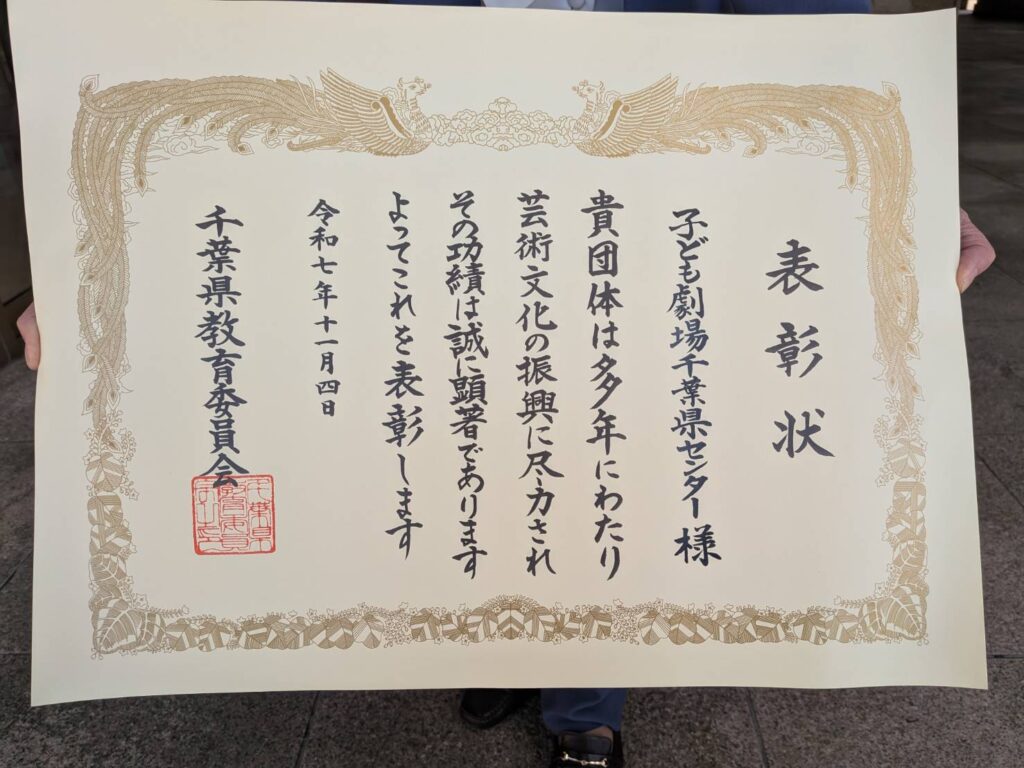 表彰状
子ども劇場千葉県センター 様
貴団体は多年にわたり
芸術文化の振興に尽力され
その功績は誠に顕著であります
よってこれを表彰します
令和七年十一月四日
千葉県教育委員会